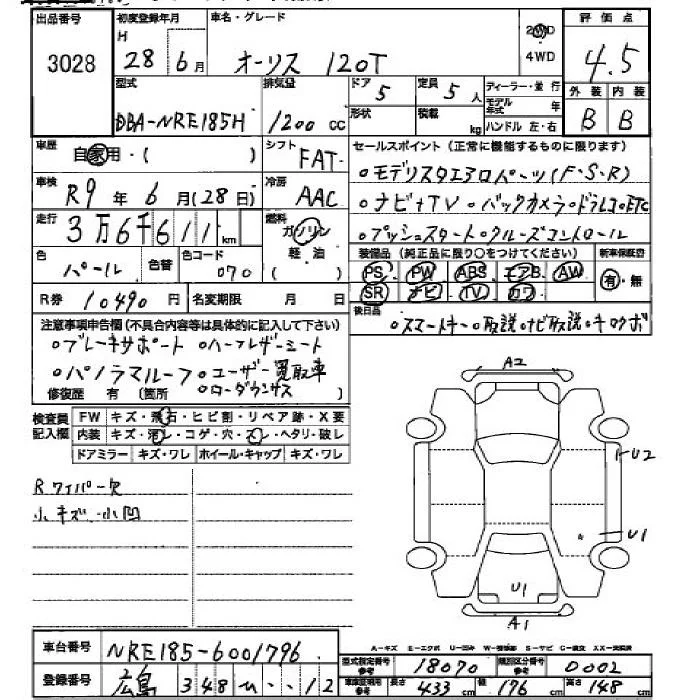 出品番号 初度登録年月 車名・グレード 評価点
3028 H 28年6月 オーリス 120T 2WD 4WD 4.5
型式 排気量 ドア 5 定員 5人 ディーラー・並行 外装 内装
DBA-NRE185H 1200 cc 形状 積載 kg モデル年式 年 ハンドル 左・右 B B
車歴 自家用・( ) シフト FAT セールスポイント(正常に機能するものに限ります)
車検 R9年6月(28日) 冷房 AAC 。モデリスタエアロパーツ(F・S・R)
走行 3万6千611km 燃料 ガソリン 軽油 。ナビ+TV。バックカメラ。ドラレコ。ETC
色 パール 色替 色コード 070 。プッシュスタート。クルーズコントロール
装備品(純正品に限り○をつけてください) 新車保証書
PS PW ABS エアB AW 有・無
SR ナビ TV カワ
R券 10490円 名変期限 月 日
後日品 。スマートキー。取説。ナビ取説。キロクボ
注意事項申告欄(不具合内容等は具体的に記入して下さい)
。ブレーキサポート 。ハーフレザーシート
。パノラマルーフ 。ユーザー買取車
修復歴 有 〔箇所 。ローダウンサス 〕
検査員記入欄 FW キズ・飛石・ヒビ割・リペア跡・X要
内装 キズ・コゲ・穴・ヘタリ・破レ
ドアミラー キズ・ワレ ホイール・キャップ キズ・ワレ
Rワイパー欠
小キズ 小凹
A2
U2
U1
U1
A1
A-キズ E-エクボ U-凹み W-補修跡 S-サビ C-腐食 XX-交換済
車台番号 NRE185-6001796
型式指定番号 参考 18070 類別区分番号 参考 0002
登録番号 広島 348 ひ ・・12
車庫証明用 参考 長さ 433cm 幅 176cm 高さ 148cm